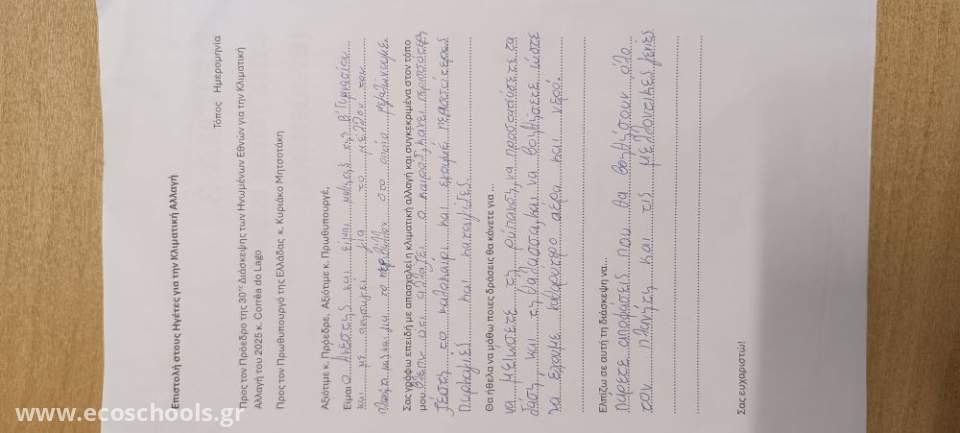 Επιστολή στους Ηγέτες για την Κλιματική Αλλαγή
Τόπος Ημερομηνία
Προς τον Πρόεδρο της 30ης Διάσκεψης των Ηνωμένων Εθνών για την Κλιματική
Αλλαγή του 2025 κ. Corrêa do Lago
Προς τον Πρωθυπουργό της Ελλάδας κ. Κυριάκο Μητσοτάκη
Αξιότιμε κ. Πρόεδρε, Αξιότιμε κ. Πρωθυπουργέ,
Είμαι ο Ανέστης και είμαι μαθητής της Β' Γυμνασίου
και με ανησυχεί για το μέλλον του
πλανήτη μας και για το περιβάλλον στο οποίο μεγαλώνουμε.
Σας γράφω επειδή με απασχολεί η κλιματική αλλαγή και συγκεκριμένα στον τόπο
μου βλέπω ότι αλλάζει ο καιρός, κάνει περισσότερη
ζέστη το καλοκαίρι και έχουμε περισσότερες
πυρκαγιές και καταιγίδες.
Θα ήθελα να μάθω ποιες δράσεις θα κάνετε για ...
να μειώσετε τη ρύπανση, να προστατεύσετε τα
δάση, και τη θάλασσα, και να βοηθήσετε ώστε
να έχουμε καθαρότερο αέρα και νερό.
Ελπίζω σε αυτή τη διάσκεψη να...
πάρετε αποφάσεις που θα βοηθήσουν όλο
τον πλανήτη και τις μελλοντικές γενιές
Σας ευχαριστώ!
www.ecoschools.gr